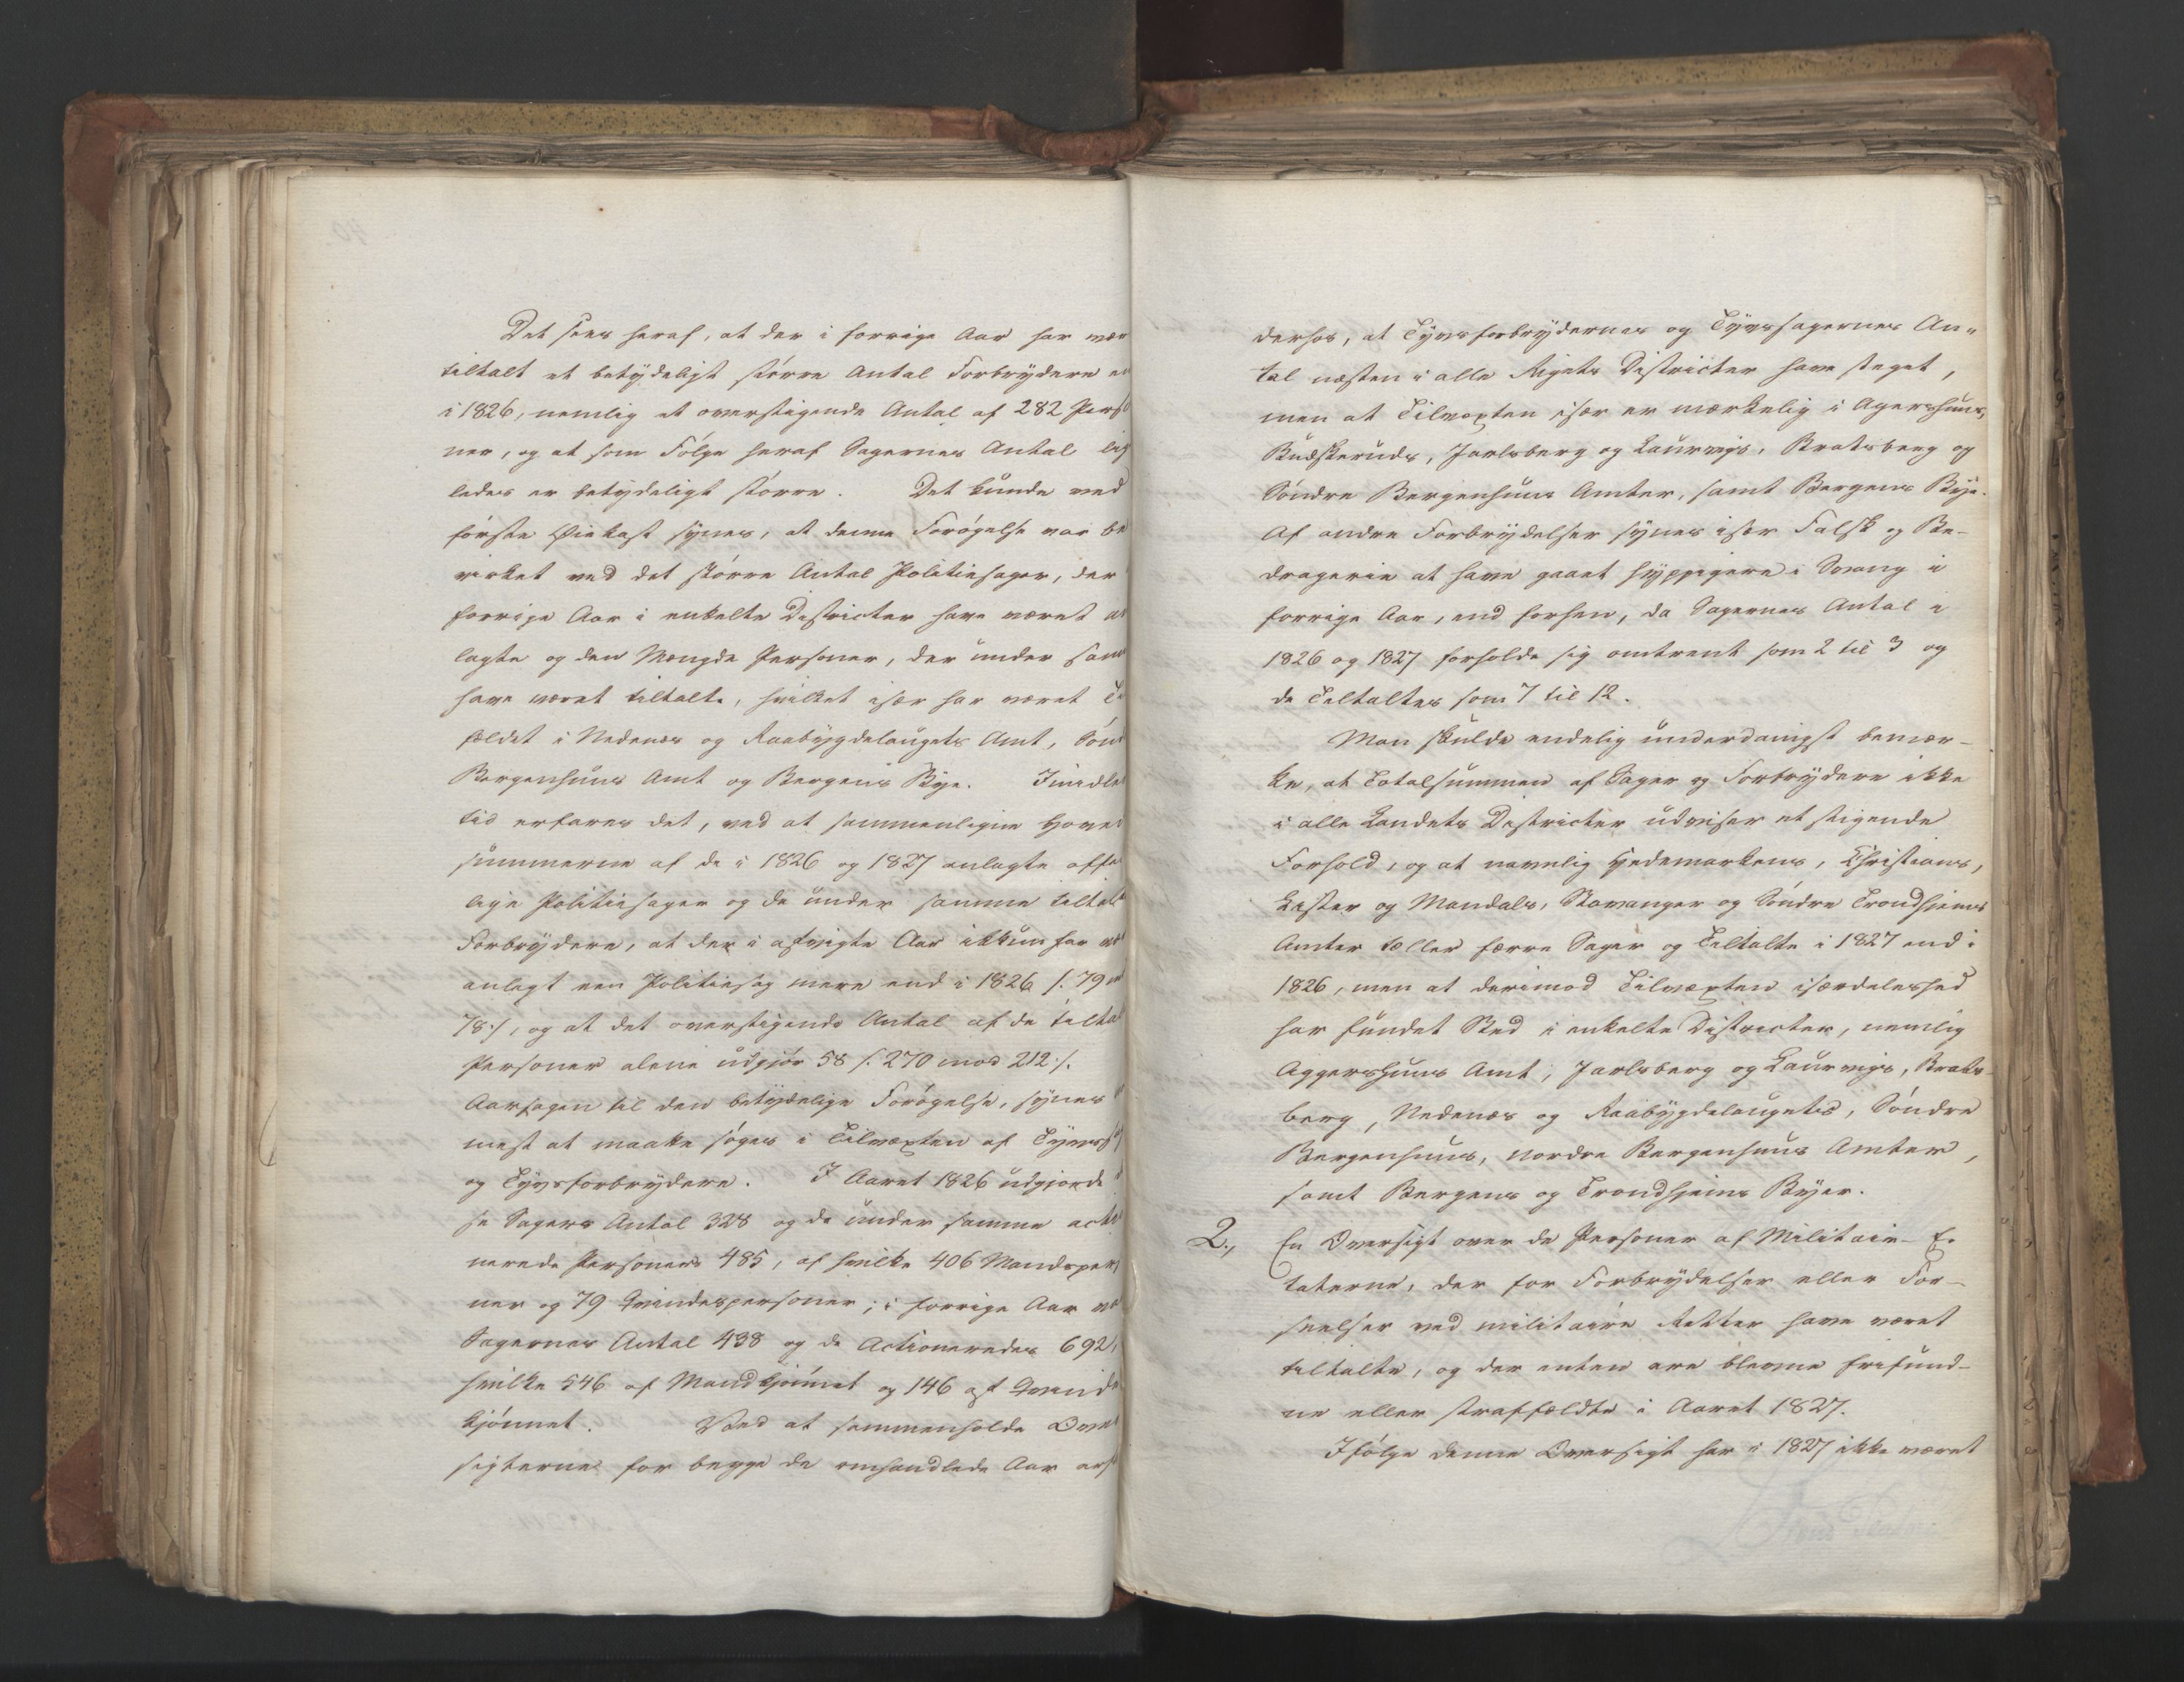 Det sees heraf, at der i forrige Aar har vær
tiltalt et betydeligt større Antal Forbrydere en
i 1826, nemlig et overstigende Antal af 282 Perso
ner, og at som Følge heraf Sagernes Antal lig
ledes er betydeligt større. Det kunde ved
første Øiekast synes, at denne Forøgelse var be
virket ved det større Antal Politiesager, der
forrige Aar i enkelte Districter have været an
lagte og den Mængde Personer, der under sam
have været tiltalte, hvilket især har været Til
fældet i Nedenæs og Raabygdelaugets Amt, Sønd
Bergenhuus Amt og Bergens Bye. Imidler
tid erfares det, ved at sammenligne Hoved
summerne af de i 1826 og 1827 anlagte offe
lige Politiesager og de under samme tiltal
Forbrydere, at der i afvigte Aar ikkun har vær
anlagt een Politiesag mere end i 1826 /: 79 mod
78 :/, og at det overstigende Antal af de tiltal
Personer alene udgjør 58 /: 270 mod 212 :/.
Aarsagen til den betydelige Forøgelse, synes
mest at maatte søges i Tilvæxten af Tyvssag
og Tyvsforbrydere. I Aaret 1826 udgjorde
se Sagers Antal 328 og de under samme actio
nerede Personers 485, af hvilke 406 Mandsperso
ner og 79 Qvindespersoner; i forrige Aar var
Sagernes Antal 438 og de Actioneredes 692,
hvilke 546 af Mandkjønnet og 146 af Qvinde
kjønnet. Ved at sammenholde Over
sigterne for begge de omhandlede Aar erf
derhos, at Tyvsforbrydernes og Tyvssagernes An-
tal næsten i alle Rigets Districter have steget,
men at Tilvæxten især er mærkelig i Agershuus,
Budskeruds, Jarlsberg og Laurvigs, Bratsberg og
Søndre Bergenhuus Amter, samt Bergens Bye.
Af andre Forbrydelser synes især Falsk og Be-
dragerie at have gaaet hyppigere i Svang i
forrige Aar, end forhen, da Sagernes Antal i
1826 og 1827 forholde sig omtrent som 2 til 3 og
de Tiltaltes som 7 til 12.
Man skulde endelig underdanigst bemær-
ke, at Totalsummen af Sager og Forbrydere ikke
i alle Landets Districter udviser et stigende
Forhold, og at navnlig Hedemarkens, Christians,
Lister og Mandals, Stavanger og Søndre Trondhjems
Amter tæller færre Sager og Tiltalte i 1827 end i
1826, men at derimod Tilvæxten isærdeleshed
har fundet Sted i enkelte Districter, nemlig
Aggershuus Amt, Jarlsberg og Laurvigs, Brats-
berg, Nedenæs og Raabygdelaugets, Søndre
Bergenhuus, Nordre Bergenhuus Amter,
samt Bergens og Trondhjems Byer.
2., En Oversigt over de Personer af Militair-E-
taterne, der for Forbrydelser eller For-
seelser ved militaire Retter have været
tiltalte, og der enten ere blevne frifund-
ne eller straffældte i Aaret 1827.
Ifølge denne Oversigt har i 1827 ikke været